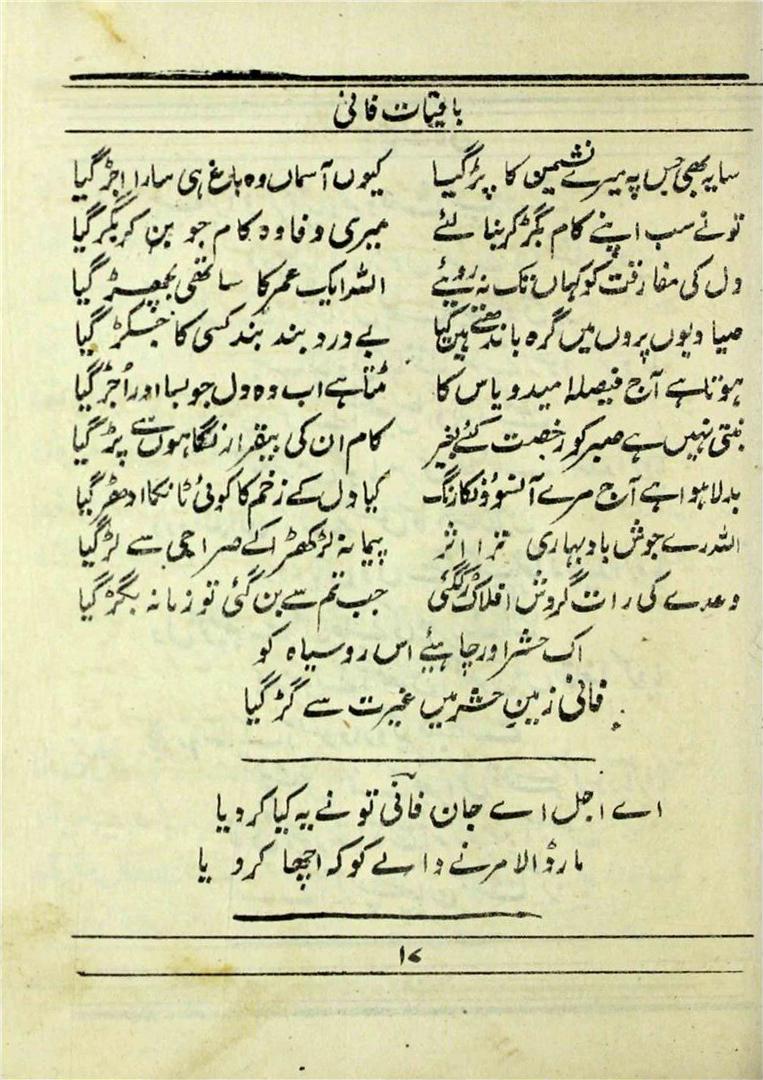 باقیات فانی
سایہ بھی جس پہ میرے نشیمن کا پڑ گیا کیوں آسماں وہ باغ ہی سارا اجڑ گیا
تو نے سب اپنے کام بگڑ کر بنا لئے میری وفا وہ کام جو بن کر بگڑ گیا
دل کی مفارقت کو کہاں تک نہ روئیے اللہ ایک عمر کا ساتھی بچھڑ گیا
صیاد یوں پروں میں گرہ باندھتے ہیں کیا بے درد بند بند کسی کا جکڑ گیا
ہوتا ہے آج فیصلہ امید و یاس کا مٹتا ہے اب وہ دل جو بسا اور اُجڑ گیا
بنتی نہیں ہے صبر کو رخصت کئے بغیر کام ان کی بیقرار نگاہوں سے پڑ گیا
بدلا ہوا ہے آج مرے آنسوؤنکا رنگ کیا دل کے زخم کا کوئی ٹانکا ادھڑ گیا
اللہ رے جوش باد بہاری ترا اثر پیمانہ لڑکھڑا کے صراحی سے لڑ گیا
وعدے کی رات گردش افلاک رک گئی جب تم سے بن گئی تو زمانہ بگڑ گیا
اک حشر اور چاہیئے اس روسیاہ کو
فانی زمینِ حشر میں غیرت سے گڑ گیا
اے اجل اے جان فانی تو نے یہ کیا کر دیا
مار ڈالا مرنے والے کو کہ اچھا کر دیا
۱۷